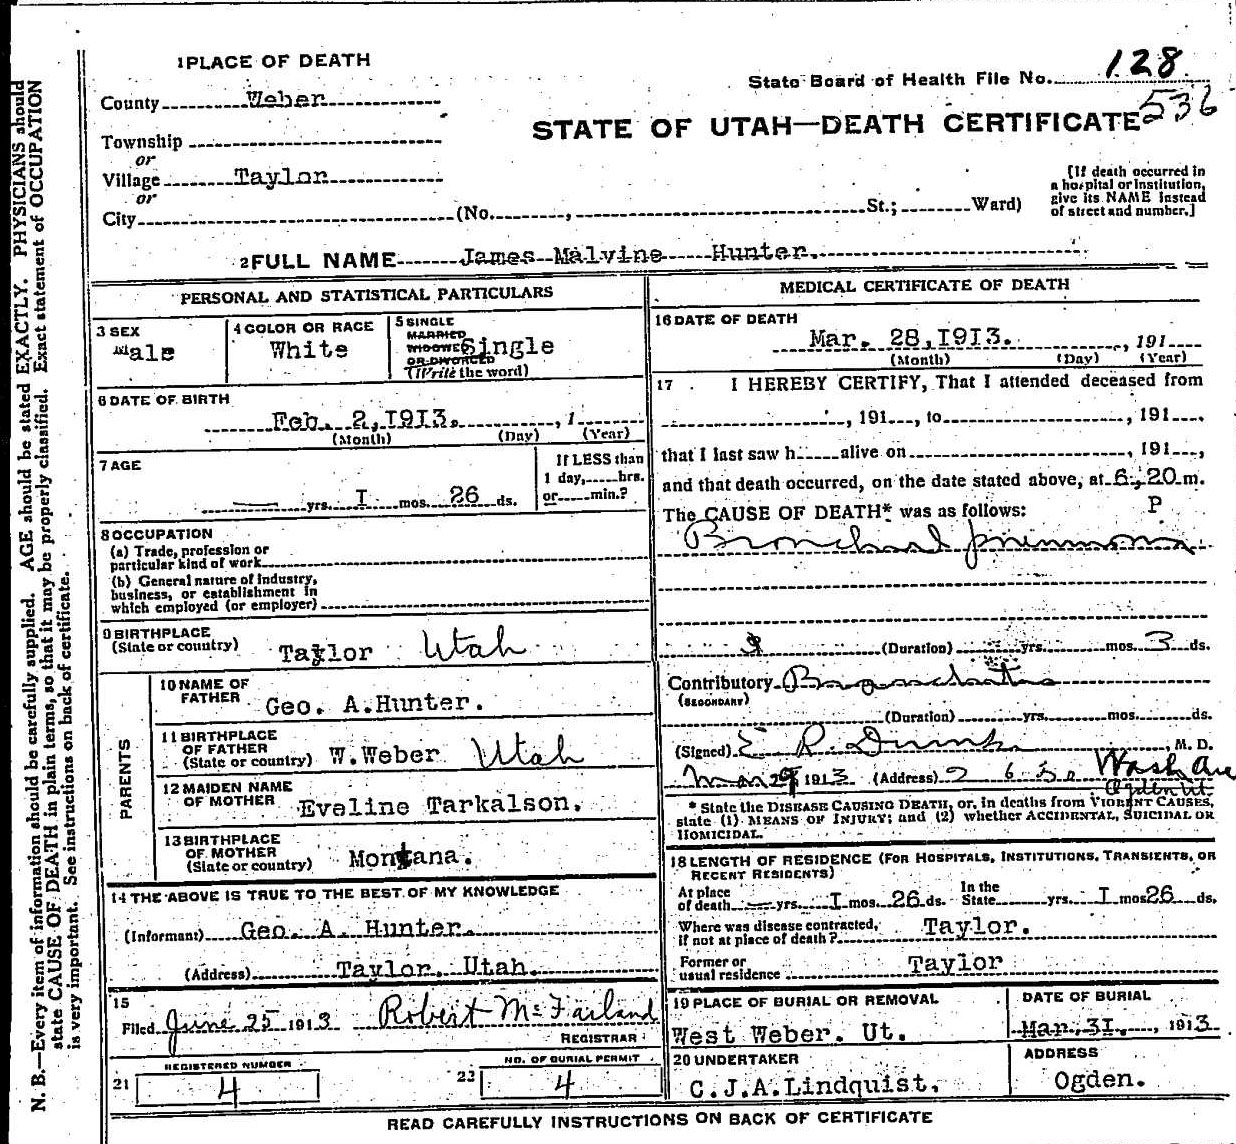 1 PLACE OF DEATH
County Weber
Township
or
Village Taylor
or
City (No. , St.; Ward)
State Board of Health File No. 128
536
STATE OF UTAH—DEATH CERTIFICATE
[If death occurred in
a hospital or institution,
give its NAME instead
of street and number.]
2 FULL NAME James Malvine Hunter.
PERSONAL AND STATISTICAL PARTICULARS
3 SEX
Male
4 COLOR OR RACE
White
5 SINGLE
MARRIED
WIDOWED
OR DIVORCED
(Write the word)
Single
6 DATE OF BIRTH
Feb. 2, 1913. , 1
(Month) (Day) (Year)
7 AGE
— yrs. I mos. 26 ds.
If LESS than
1 day, hrs.
or min.?
8 OCCUPATION
(a) Trade, profession or
particular kind of work
(b) General nature of industry,
business, or establishment in
which employed (or employer)
9 BIRTHPLACE
(State or country) Taylor Utah
PARENTS
10 NAME OF
FATHER Geo. A.Hunter.
11 BIRTHPLACE
OF FATHER
(State or country) W.Weber Utah
12 MAIDEN NAME
OF MOTHER Eveline Tarkalson.
13 BIRTHPLACE
OF MOTHER
(State or country) Montana.
14 THE ABOVE IS TRUE TO THE BEST OF MY KNOWLEDGE
(Informant) Geo. A. Hunter.
(Address) Taylor. Utah.
15
Filed June 25 1913 Robert McFarland
REGISTRAR
REGISTERED NUMBER
21 4
NO. OF BURIAL PERMIT
22 4
MEDICAL CERTIFICATE OF DEATH
16 DATE OF DEATH
Mar. 28, 1913. , 191
(Month) (Day) (Year)
17 I HEREBY CERTIFY, That I attended deceased from
, 191 , to , 191 ,
that I last saw h alive on , 191 ,
and that death occurred, on the date stated above, at 6;20 m.
P
The CAUSE OF DEATH* was as follows:
Bronchial pneumonia
(Duration) yrs. mos. 3 ds.
Contributory Bronchitis
(SECONDARY)
(Duration) yrs. mos. ds.
(Signed) E R. , M. D.
Mar 29 1913 (Address) 2630 Wash Ave
Ogden Ut.
* State the DISEASE CAUSING DEATH, or, in deaths from VIOLENT CAUSES,
state (1) MEANS OF INJURY; and (2) whether ACCIDENTAL, SUICIDAL OR
HOMICIDAL.
18 LENGTH OF RESIDENCE (FOR HOSPITALS, INSTITUTIONS, TRANSIENTS, OR
RECENT RESIDENTS)
At place
of death — yrs. I mos. 26 ds.
In the
State yrs. I mos 26 ds.
Where was disease contracted,
if not at place of death? Taylor.
Former or
usual residence Taylor
19 PLACE OF BURIAL OR REMOVAL
West Weber. Ut.
DATE OF BURIAL
Mar. 31. , 1913
20 UNDERTAKER
C.J.A.Lindquist.
ADDRESS
Ogden.
READ CAREFULLY INSTRUCTIONS ON BACK OF CERTIFICATE
N. B.—Every item of information should be carefully supplied. AGE should be stated EXACTLY. PHYSICIANS should
state CAUSE OF DEATH in plain terms, so that it may be properly classified. Exact statement of OCCUPATION
is very important. See instructions on back of certificate.